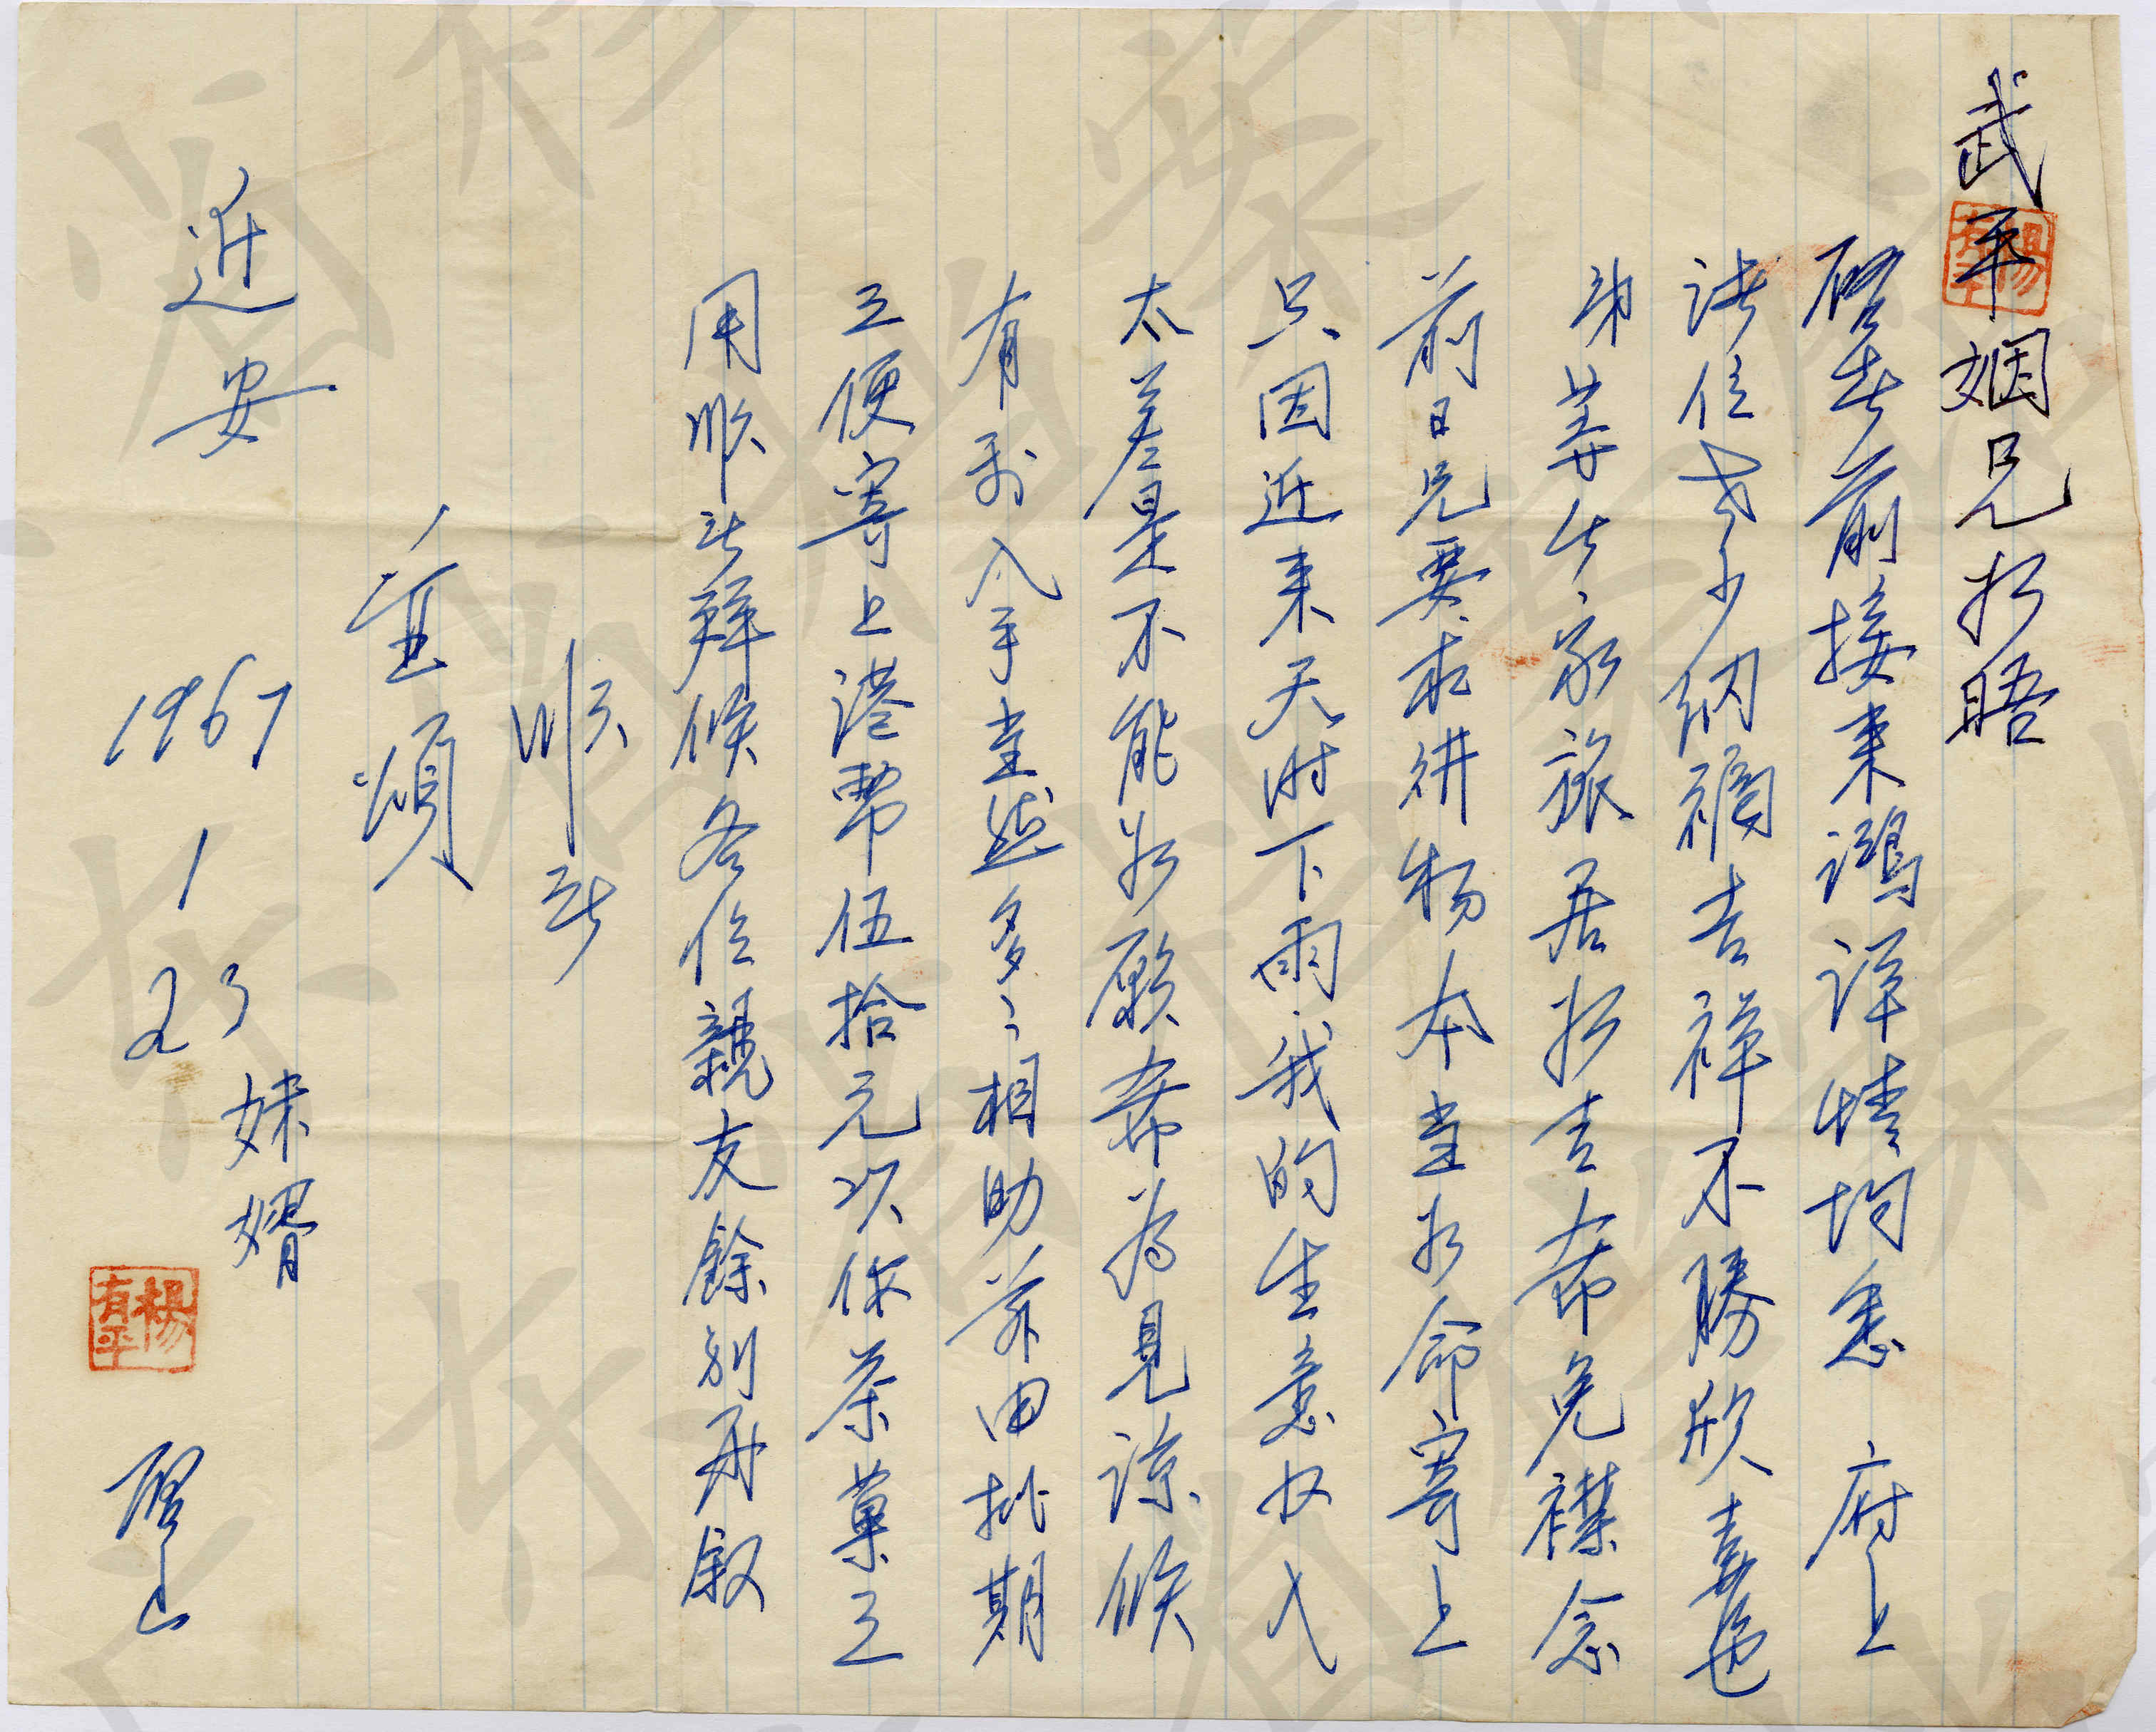 武平姻兄如晤
啓者前接来鴻詳情均悉 府上
諸位老少納福吉祥不勝欣喜也
弟等此家旅居如吉希免襟念
前日兄要求耕物本当如命寄上
只因近来天时下雨我的生意收入
太差是不能如願希为見諒候
有利入手当然多々相助茲由批期
之便寄上港幣伍拾元以作茶菓之
用順此拜候各位親友餘別再叙
順此
並頌
近安
妹婿
楊有平
啓上
1967 1 23